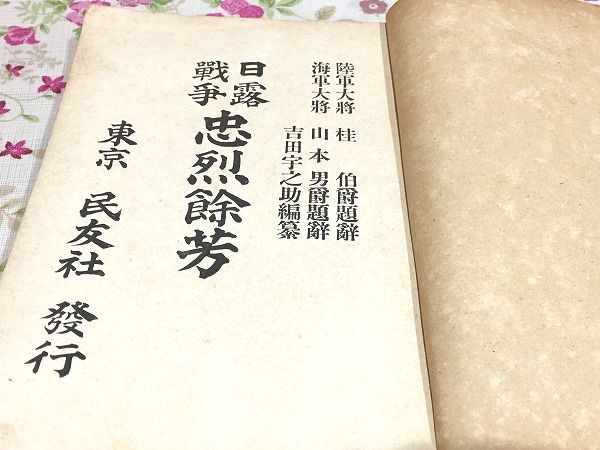 陸軍大將 桂 伯爵題辭
海軍大將 山本 男爵題辭
吉田宇之助編纂
日露
戰爭
忠烈餘芳
東京 民友社 發行